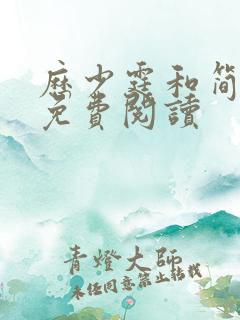 历少霆和简
免費閱讀
青燈大師
未经同意禁止转载